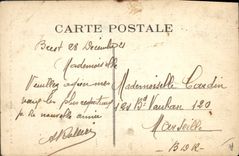 CARTE POSTALE
Brest 28 Décembre 21
Mademoiselle
Veuillez agréer mes
vœux les plus respectueux
de nouvelle année
Mademoiselle Cardin
Bd Vauban 120
Marseille
B D R